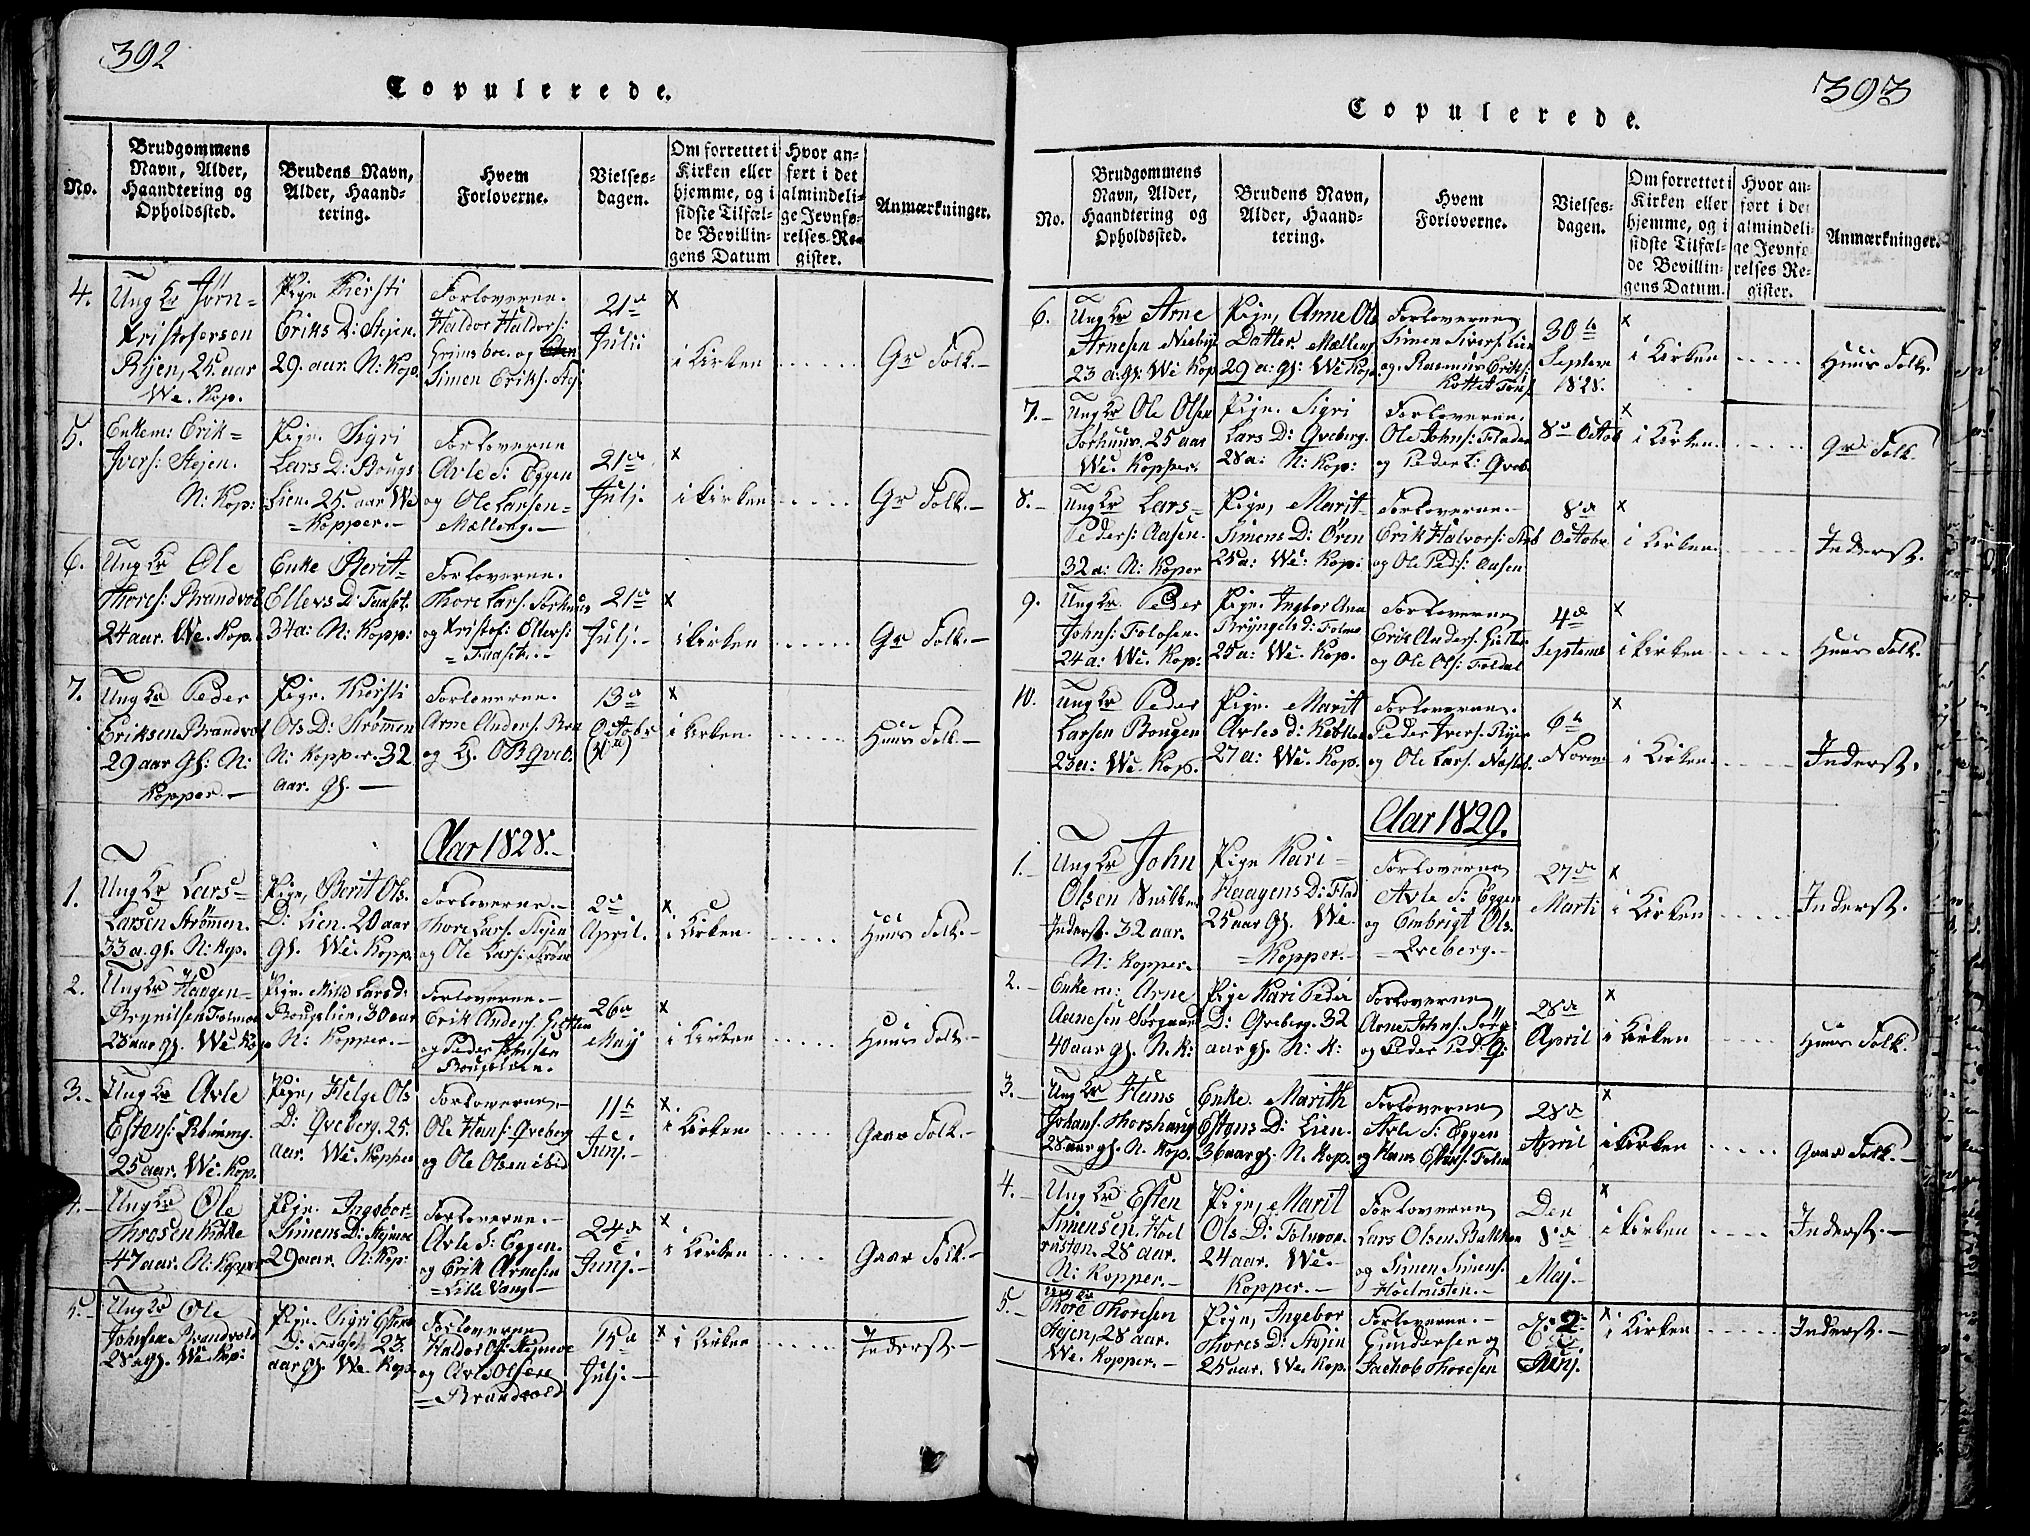 392
Copulerede.
No.
Brudgommens
Navn, Alder,
Haandtering og
Opholdssted.
Brudens Navn,
Alder, Haand-
tering.
Hvem
Forloverne.
Vielses-
dagen.
Om forrettet i
Kirken eller
hjemme, og i
sidste Tilfæl-
de Bevillin-
gens Datum
Hvor an-
ført i det
almindeli-
ge Jevnfø-
relses-Re-
gister.
Anmærkninger.
4.
Ung Kr Jørn-
Kristofersen
Ryen, 25 aar
We. Kop.
Pige Kiersti
Eriks D: Stejen.
29. aar. N: Kop.
Forloverne.
Haldor Haldors:
Grimsboe. og
Simen Eriks. Stej
21de
Julii
x
i Kirken
Gr Folk.-
5.
Enkem: Erik-
Ivers: Stejen.
N: Kop:
Pige. Sigri
Lars D: Bougs
Lien. 25. aar We
=Kopper.-
Forloverne
Avle S: Eggen
og Ole Larsen=
Mælleng.-
21de
Julj.
x
i Kirken
Gr Folk.-
6.
Ung Kr Ole
Thores: Brandvol
24 aar. We. Kop.
Enke Berit-
Ellevs D: Faaset.
34 a: N: Kopp:
Forloverne.
Thore Lars: Sørhuus
og Kristof: Olters:
=Faaset.-
21de
Julj.-
x
i Kirken
Gr Folk.-
7.
Ung Kr Peder
Eriksen Brandvol
29 aar Gl: N:
Kopper.-
Pige. Kiersti
Ols D: Strømmen
N: Kopper. 32
aar. Gl.-
Forloverne.
Arne Anders:
og
13de
Octobr
x
i Kirken.
Huus Folk.-
Aar 1828.-
1.
Ung Kr Lars-
Larsen Strømmen.
33 a. gl. N: Kop.
Pige, Berit Ols.
D: Lien. 20 aar
Gl. We. Kopp.
Forloverne.-
Thore Lars: Stejen
og Ole Lars: Strøm
2de
April.
x
i Kirken.
Huus Folk.-
2.
Ung Kr Haagen-
Brynilsen Tolmoe
28 aar gl. We. Kop
Pige. Mille Lars d:
Bougslien. 30 aar
N: Kopper.-
Forloverne.-
Erik Anders: Hutten
og Peder Johnsen
Bougslien.
26de
Maij
x
i Kirken
Huus Folk.-
3.-
Ung Kr Avle
Estens: Rønning.
25 aar. We. Kop.
Pige, Helge Ols
D: Qveberg. 25.
aar. We. Kopper
Forloverne.-
Ole Hans: Qveberg
og Ole Olsen ibid
11te
Junj.
x
i Kirken.
Gaar Folk.-
4.-
Ung Kr Ole
Throsen Kikke
47 aar. N: Kopper
Pige. Ingebor-
Simens D: Stejmoe
29 aar. N: Kop:
Forloverne.-
Avle S: Eggen.
og Erik Arnesen
=Lille Vang.
24de
Junj.-
x
i Kirken
Gaar Folk.-
5.-
Ung Kr Ole
Johnsen Brandvold
28 a gl. We. Kop:
Pige, Sigri Estens
D: Faaset. 23.
aar gl. We. Kop.
Forloverne
Haldor Ols: Stejmoe
og Avle Olsen
=Brandvold
15de
Julj.-
x
i Kirken
Inderst.-
393
Copulerede.
No.
Brudgommens
Navn, Alder,
Haandtering og
Opholdssted.
Brudens Navn,
Alder, Haand-
tering.
Hvem
Forloverne.
Vielses-
dagen.
Om forrettet i
Kirken eller
hjemme, og i
sidste Tilfæl-
de Bevillin-
gens Datum.
Hvor an-
ført i det
almindeli-
ge Jevnfø-
relses Re-
gister.
Anmærkninger.
6.
Ung Kr Arne
Arnesen Neebye
23 a: gl: We Kop
Pige, Anne Ols
Datter. Mælleng
29 a: gl: We Kop.
Forloverne
Simen Sivers: Lien
og Rasmus Eriks:
30te
Septem
1828.
x
i Kirken
Huus Folk.
7.-
Ung Kr Ole Olsen
Sørhuus. 25 aar
We. Kopper.
Pige. Sigri
Lars D: Qveberg.
28 a: N: Kop:
Forloverne.
Ole Johns: Fladen
og Peder L: Qveb.
8de Octob
x
i Kirken.
Gr Folk.
8.-
Ung Kr Lars-
Peders: Aasen.
32 a: N: Koper
Pige, Marit-
Simens D: Øren
25 a: We: Kop:
Forloverne.-
Erik Halvors:
og Ole Peds: Aasen
8de
Octobr
x
i Kirken.
Inderst.
9.
Ung Kr. Peder
Johns: Tolosen.
24 a: We. Kop:
Pige. Ingbor Ana
Bryngels d: Tolmo
25 a: We. Kop.
Forloverne
Erik Anders: Hutten
og Ole Ols: Foldal
4de
Septemb
x
i Kirken
Huus Folk.
10.
Ung Kr Peder
Larsen Bougen
23 a: We. Kop.
Pige. Marit
Avles D:
27 a: We. Kop.
Forloverne.
Peder Ivers: Ryen
og Ole Lars:
6te
Novem
x
i Kirken.
Inderst.
Aar 1829.
1.-
Ung Kr John
Olsen
Inderst. 32 aar.
N: Kopper.
Pige Kari-
Haagens D: Flad
25 aar gl. We.
=Kopper.-
Forloverne
Avle S: Eggen
og Embrigt Ols.
=Qveberg.-
27de
Marti
x
i Kirken
Inderst.
2.-
Enkem: Arne
Aanesen Sørgaard
40 aar gl. N. K:
Pige Kari Peder
D: Qveberg. 32
aar gl. N: K:
Forloverne
Arne Johns: Sørg:
og Peder Ped: Q:
28de
April
x
i Kirken
Huus Folk.
3.-
Ung Kr Hans
Johans: Thorshaug
28 aar gl. N. Kop.
Enke. Marith
Estens D: Lien.
36 aar gl. N. Kop.
Forloverne
Avle S: Eggen
og Hans Estens: Tolmo
28de
April
x
i Kirken
Gaar Folk.-
4.-
Ung Kr Esten
Simensen. Hoel
rusten. 28 aar.
N: Kopper.-
Pige, Marit
Ols D: Tolmoen.
24 aar. We.-
Kopper.-
Forloverne
Lars Olsen Bakken
og Simen Simens:
Hoelrusten.-
Den
8de
Maj.-
x
i Kirken
Inderst.-
5.-
Ung Kr
Thore Thoresen
Stejen, 28 aar.
We. Kopper.-
Pige, Ingebor
Thores D: Stejen
25 aar. We. Kop.
Forloverne.-
Gundersen og
Jachob Thoresen
D: 2de
Junj.
x
i Kirken
Inderst.-